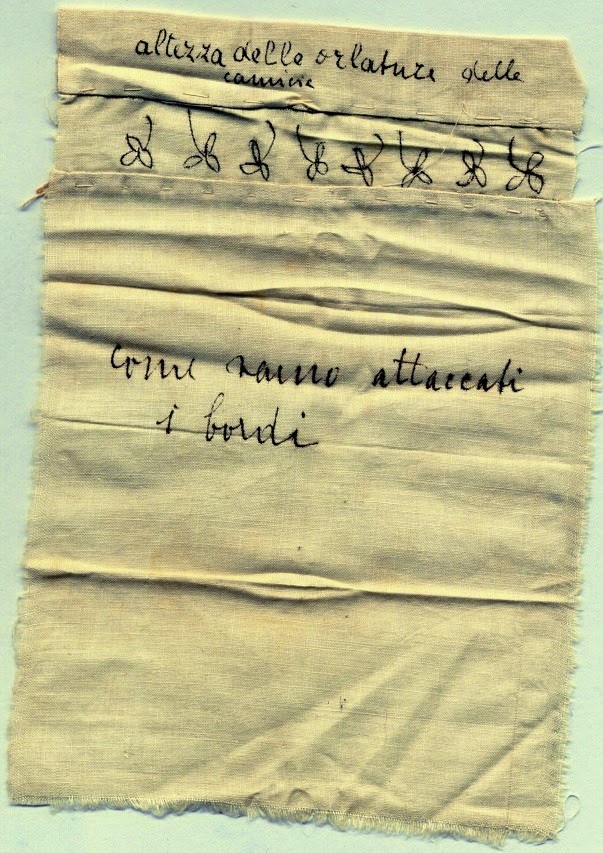 altezza delle orlature delle
camicie
come vanno attaccati
i bordi